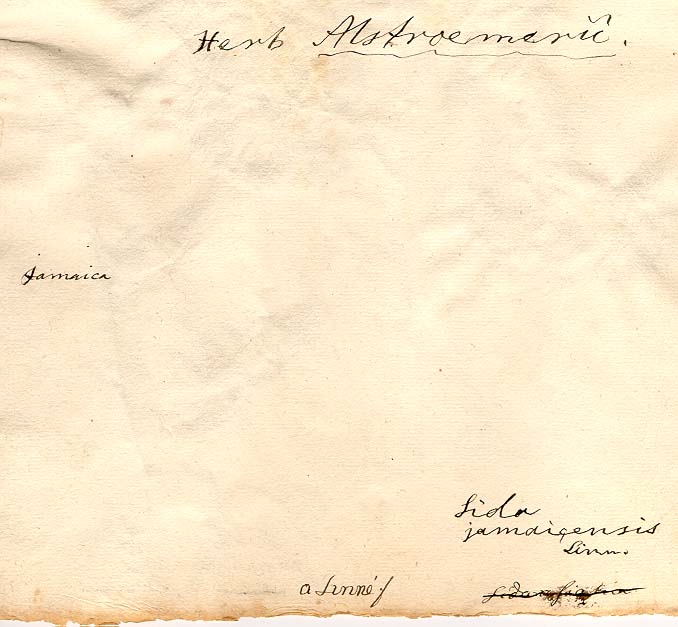 Herb Alstroemerii.
Jamaica
Sida
jamaicensis
Linn.
a Linné f